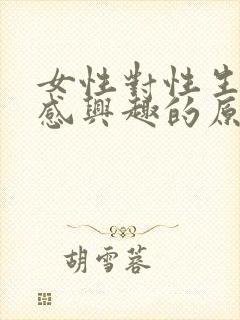 女性對性生
感興趣的原
胡雪蓉